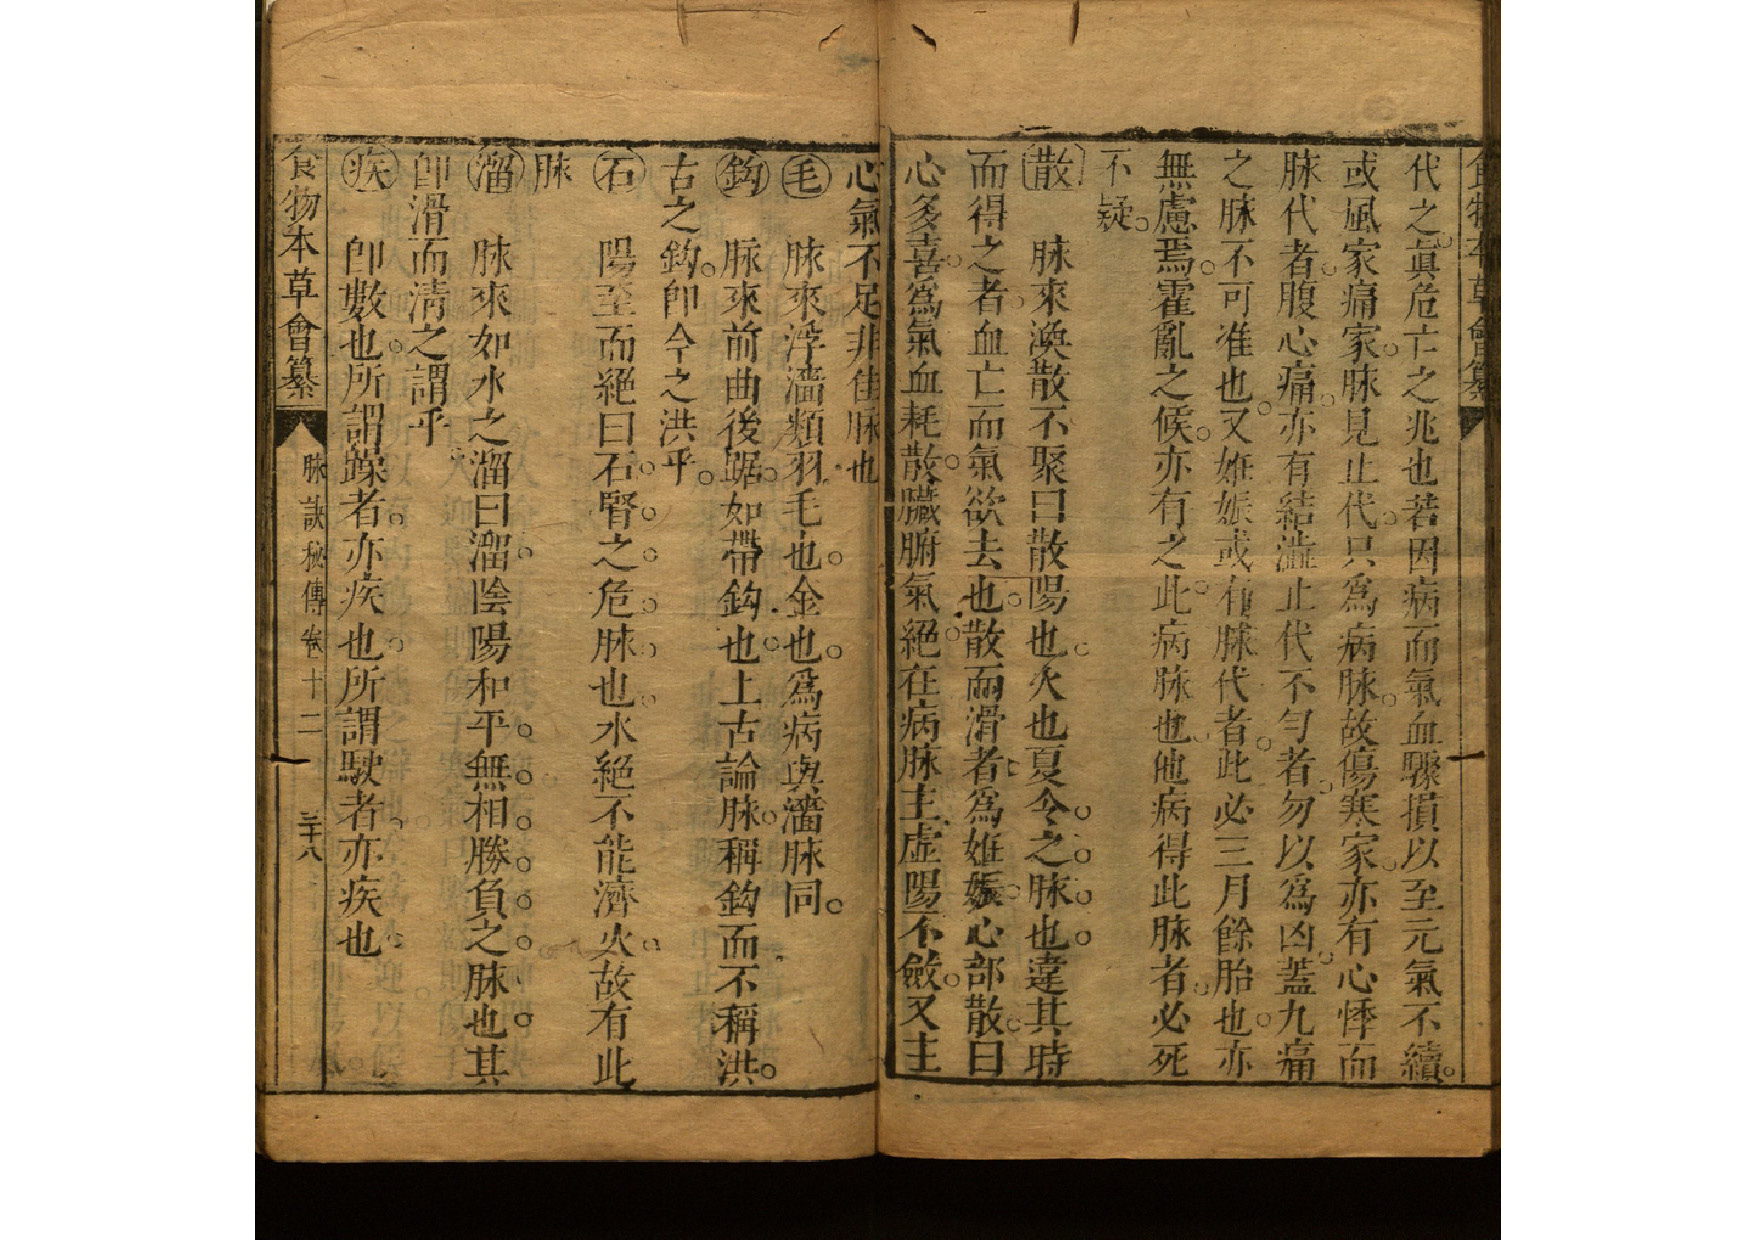 食物本草會纂
代之眞危亡之兆也若因病而氣血驟損以至元氣不續
或風家痛家脉見止代只爲病脉故傷寒家亦有心悸而
脉代者腹心痛亦有結澁止代不勻者勿以爲凶蓋九痛
之脉不可准也又姙娠或有脉代者此必三月餘胎也亦
無慮焉霍亂之候亦有之此病脉也他病得此脉者必死
不疑
散 脉來渙散不聚曰散陽也火也夏令之脉也違其時
而得之者血亡而氣欲去也散而滑者爲姙娠心部散曰
心多喜爲氣血耗散臟腑氣絕在病脉主虛陽不斂又主
心氣不足非佳脉也
毛 脉來浮濇類羽毛也金也爲病與濇脉同
鈎 脉來前曲後踞如帶鈎也上古論脉稱鈎而不稱洪
古之鈎卽今之洪乎
石 陽至而絕曰石腎之危脉也水絕不能濟火故有此
脉
溜 脉來如水之溜曰溜陰陽和平無相勝負之脉也其
卽滑而淸之謂乎
疾 卽數也所謂躁者亦疾也所謂駛者亦疾也
食物本草會纂 脉訣秘傳 卷十二 三十八